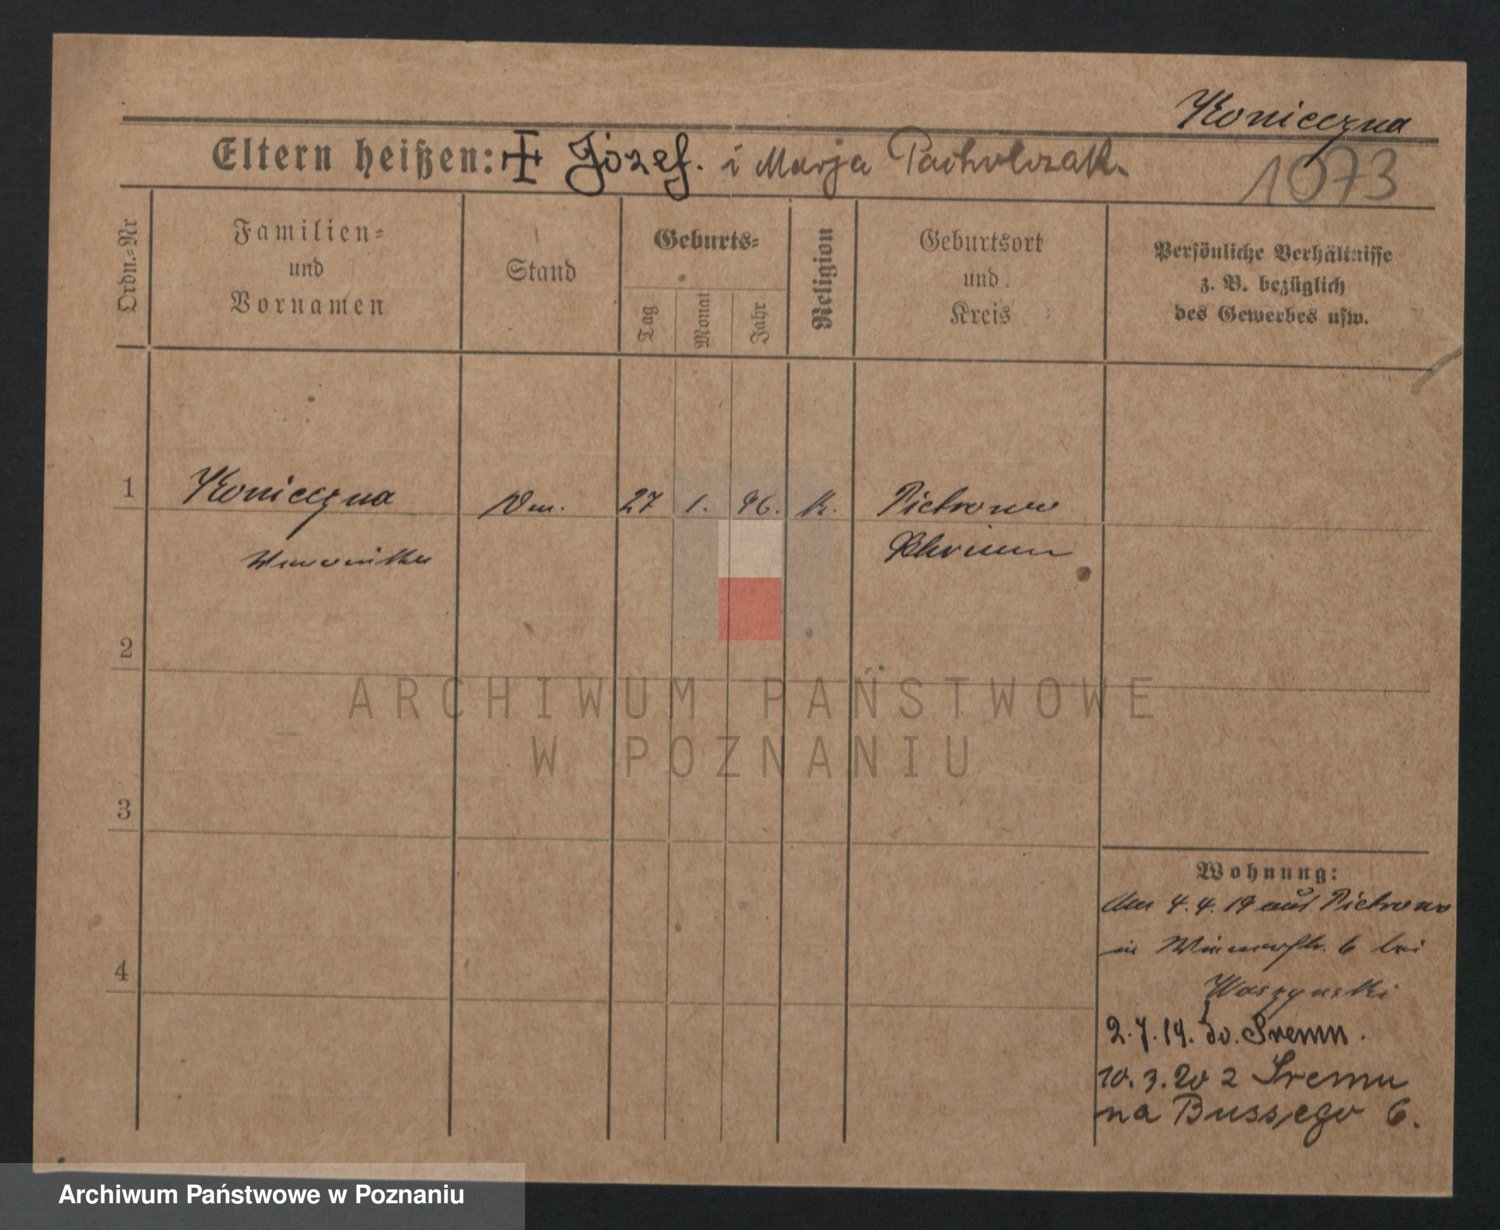 Konieczna
Eltern heißen: Józef. i Marja Pacholczak.
1073
Ordn.-Nr
Familien-
und
Vornamen
Stand
Geburts-
Tag
Monat
Jahr
Religion
Geburtsort
und
Kreis
Persönliche Verhältnisse
z. B. bezüglich
des Gewerbes usw.
1
Konieczna
27 1. 96. k. Pietrowo
Weronika
Schrimm
2
ARCHIWUM PAŃSTWOWE
W POZNANIU
3
4
Wohnung:
Am 4.4.19 aus Pietrowo
in 6 bei
2.7.19. do. Śremu.
10.3.20 z Śremu
na Bussego 6.
Archiwum Państwowe w Poznaniu